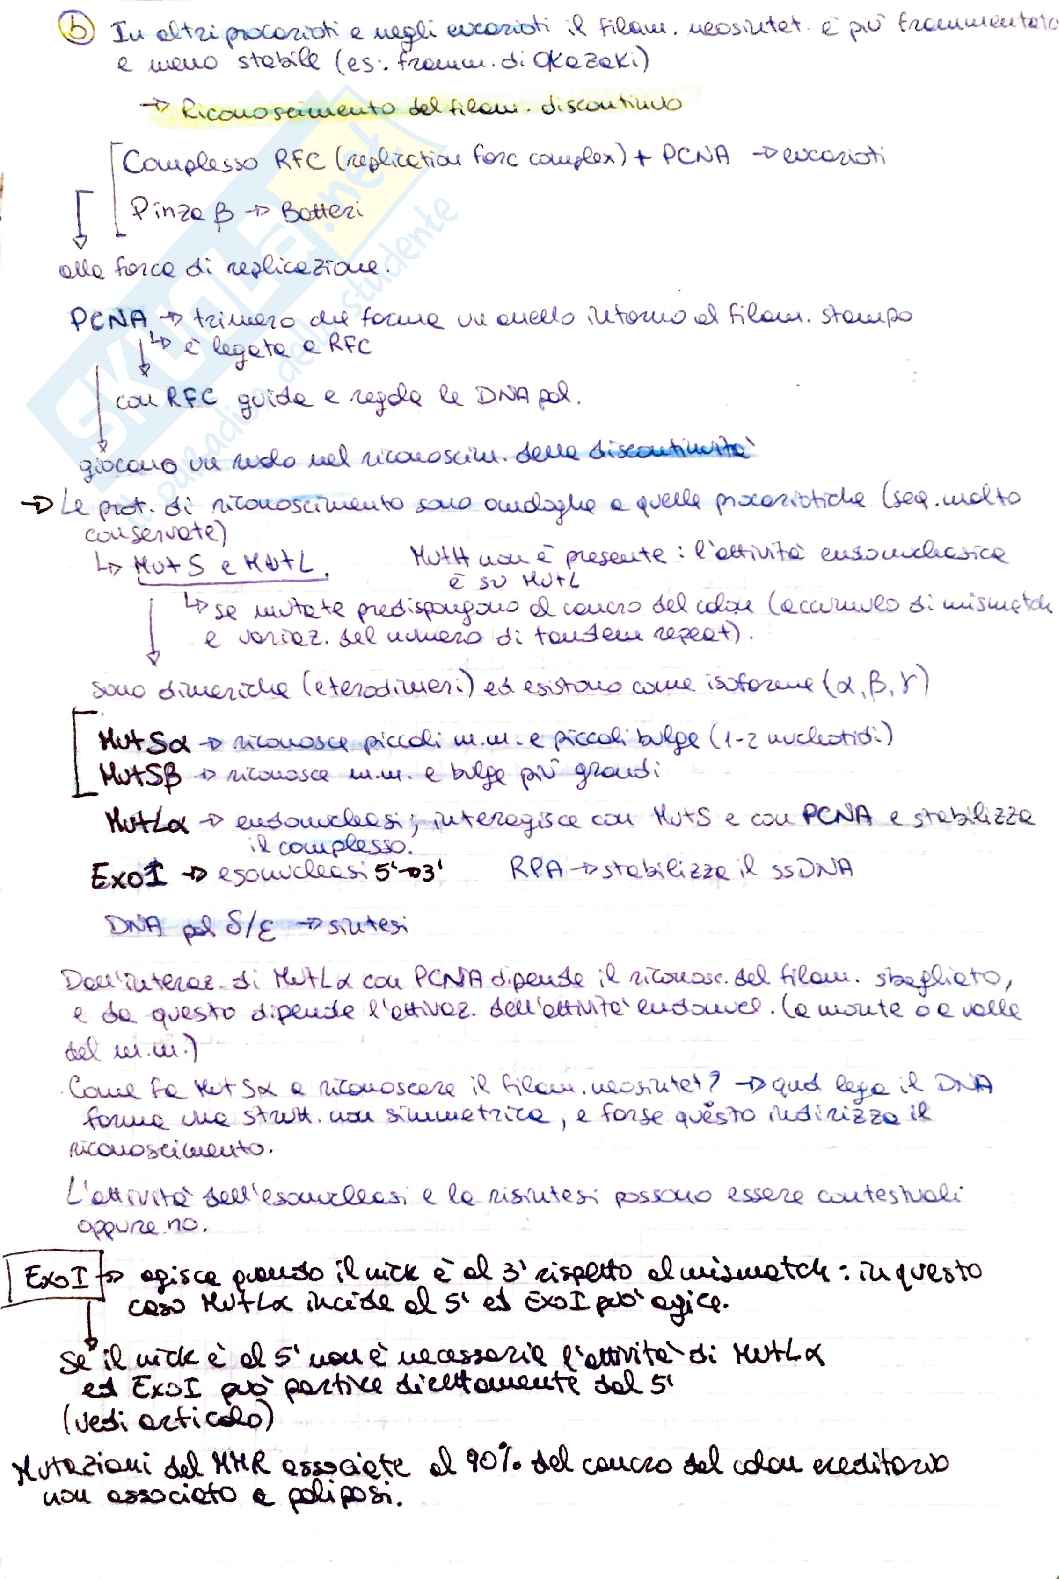 (b) In altri procarioti e negli eucarioti il filam. neosintet. è più frammentato
e meno stabile (es: framm. di Okazaki)
→ Riconoscimento del filam. discontinuo
Complesso RFC (replication forc complex) + PCNA → eucarioti
Pinza β → Batteri
alla forca di replicazione.
PCNA → trimero che forma un anello intorno al filam. stampo
↳ è legata a RFC
con RFC guida e regola le DNA pol.
giocano un ruolo nel riconoscim. della discontinuità
→ Le prot. di riconoscimento sono analoghe a quelle procariotiche (seq. molto
conservate)
↳ MutS e MutL. MutH non è presente: l'attività endonucleasica
è su MutL
↳ se mutate predispongono al cancro del colon (accumulo di mismatch
e variaz. del numero di tandem repeat).
sono dimeriche (eterodimeri) ed esistono come isoforme (α, β, γ)
MutSα → riconosce piccoli m.m. e piccoli bulge (1-2 nucleotidi)
MutSβ → riconosce m.m. e bulge più grandi
MutLα → endonucleasi; interagisce con MutS e con PCNA e stabilizza
il complesso.
ExoI → esonucleasi 5'→3' RPA → stabilizza il ssDNA
DNA pol δ/ε → sintesi
Dall'interaz. di MutLα con PCNA dipende il riconosc. del filam. sbagliato,
e da questo dipende l'attivaz. dell'attività endonucl. (a monte o a valle
del m.m.)
Come fa MutSα a riconoscere il filam. neosintet? → qnd lega il DNA
forma una strutt. non simmetrica, e forse questo indirizza il
riconoscimento.
L'attività dell'esonucleasi e la risintesi possono essere contestuali
oppure no.
ExoI → agisce quando il nick è al 3' rispetto al mismatch: in questo
caso MutLα incide al 5' ed ExoI può agire.
Se il nick è al 5' non è necessaria l'attività di MutLα
ed ExoI può partire direttamente dal 5'
(vedi articolo)
Mutazioni del MMR associate al 90% del cancro del colon ereditario
non associato a poliposi.
SKUOLA.net
il paradiso dello studente